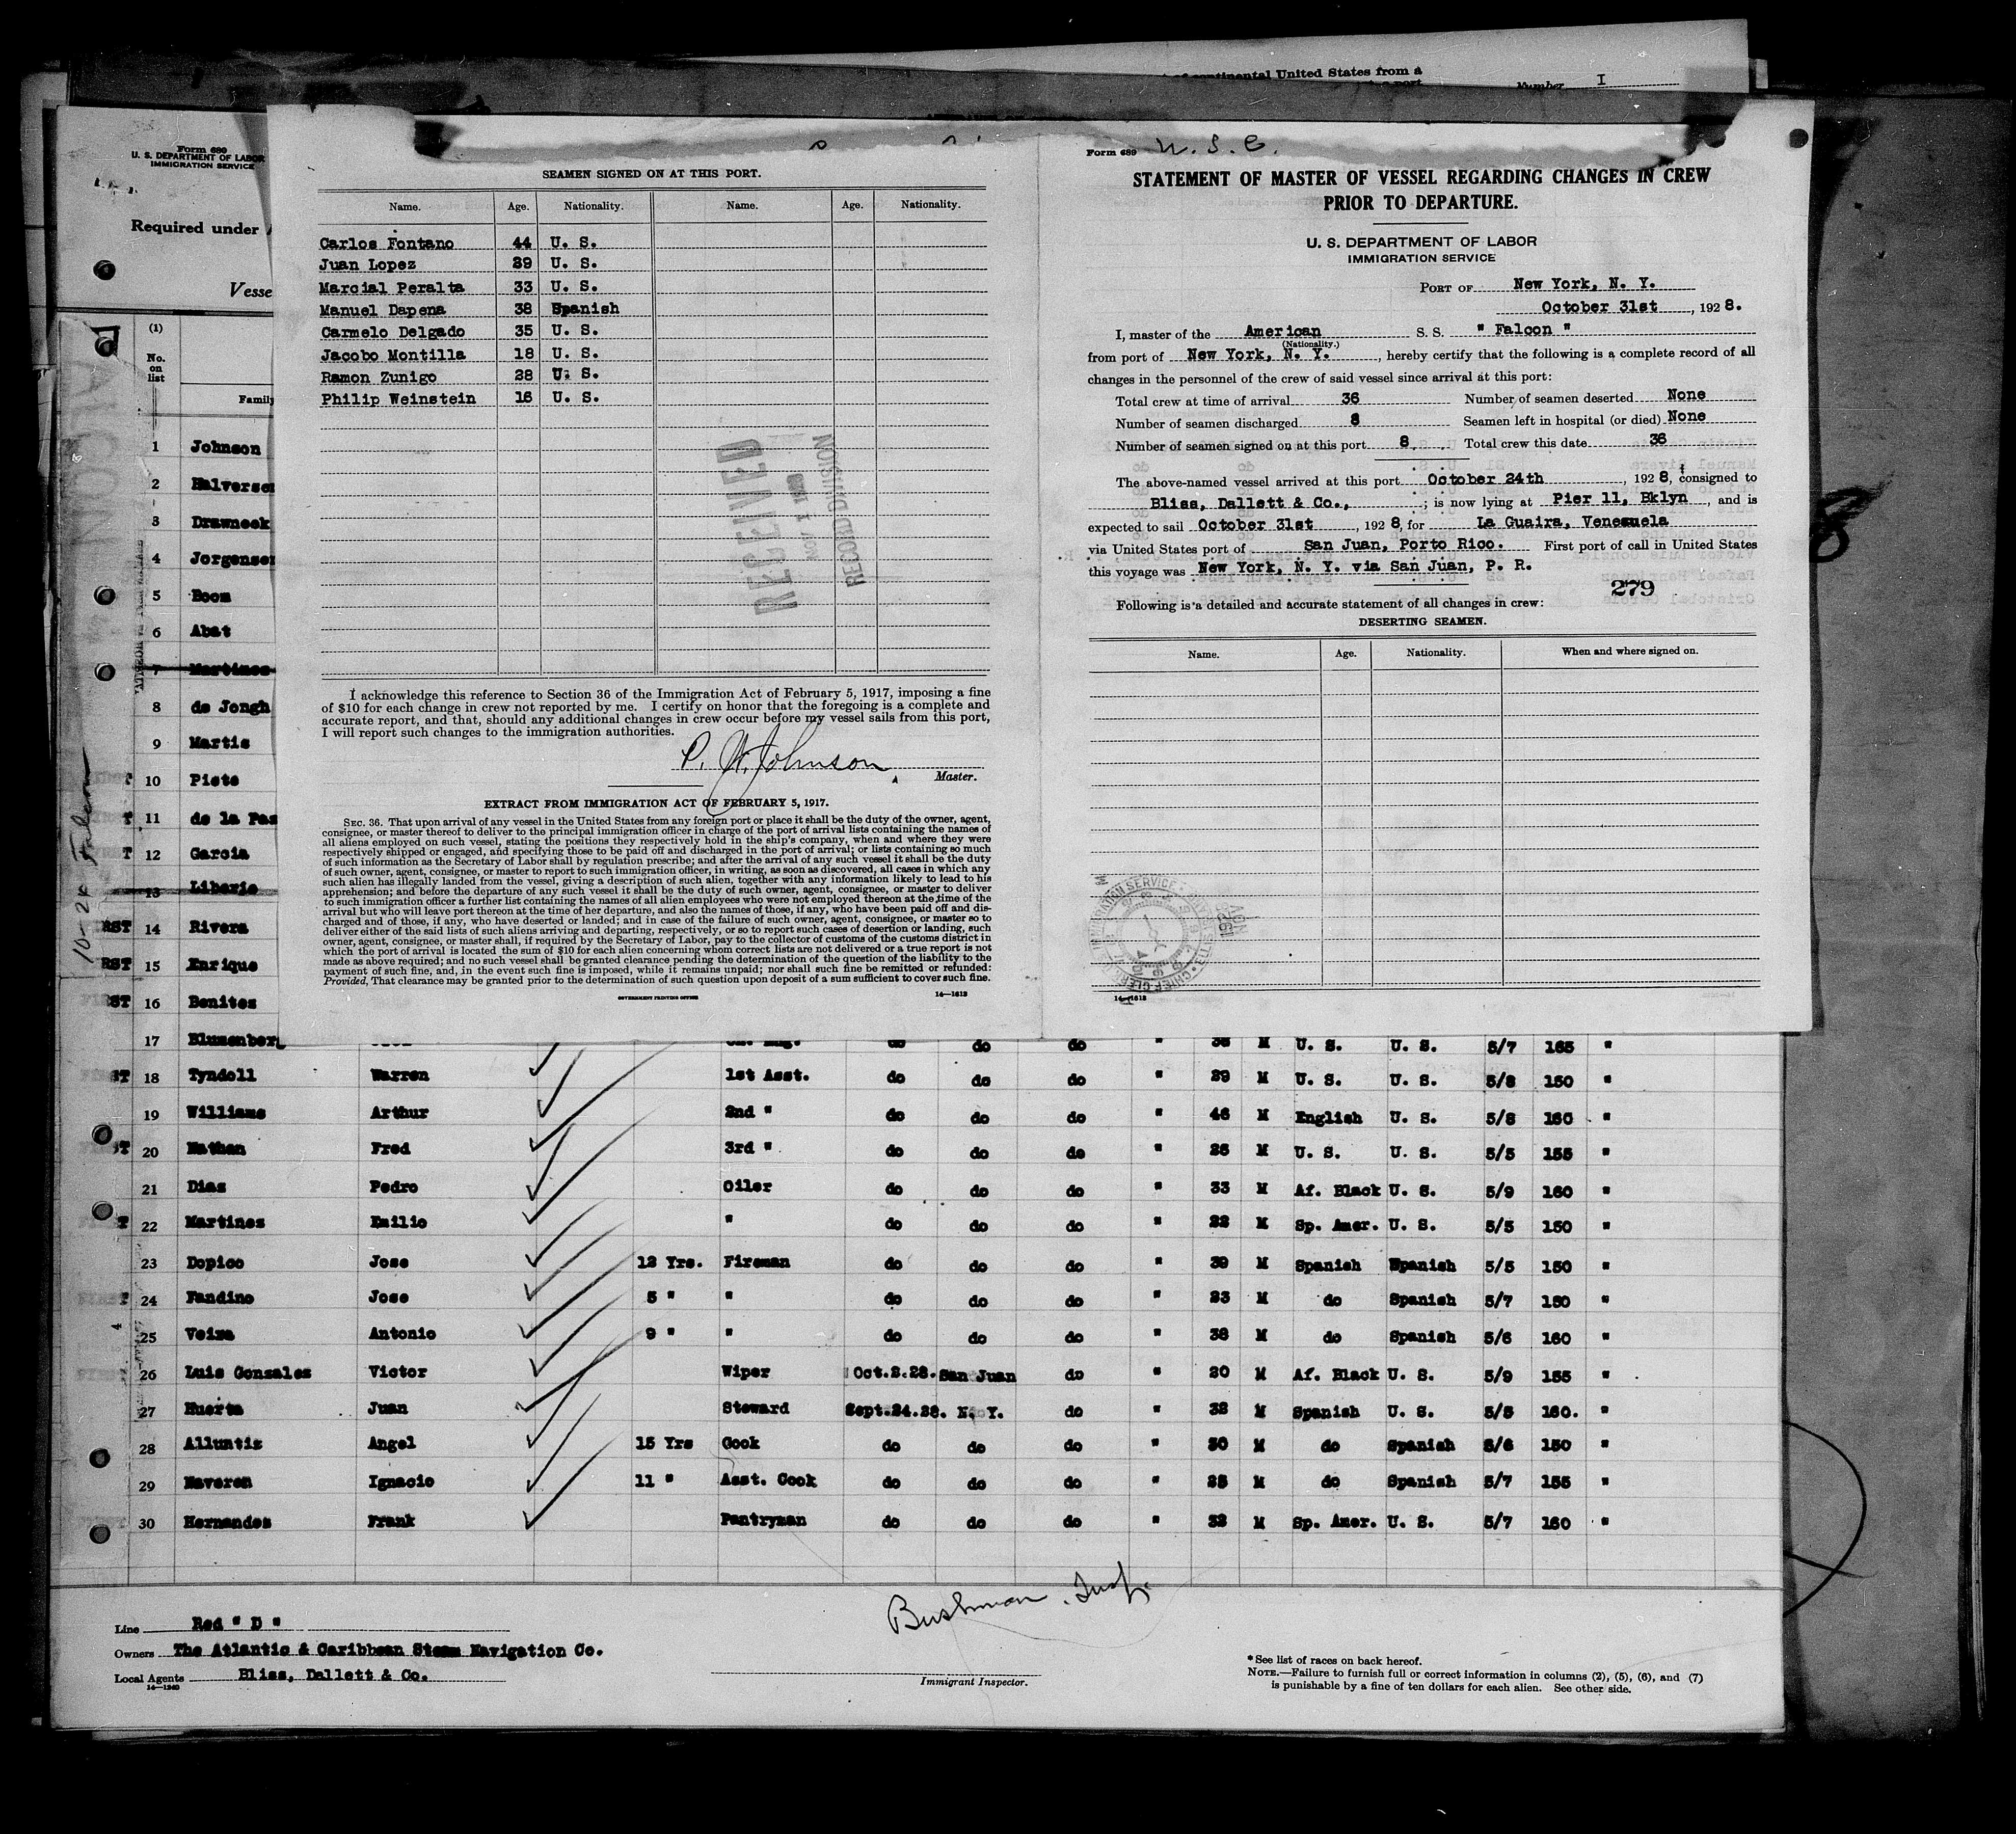 of continental United States from a
Number I
Form 689
U. S. DEPARTMENT OF LABOR
IMMIGRATION SERVICE
Required under
Vesse
(1)
No. on list
Family
1 Johnson
2 Halversen
3 Drawneek
4 Jorgensen
5 Boom
6 Abat
7 Martines
8 de Jongh
9 Martis
10 Piete
11 de la Paz
12 Garcia
13 Liberie
14 Rivera
15 Enrique
16 Benites
10-24 Falcon
SEAMEN SIGNED ON AT THIS PORT.
Name. Age. Nationality. Name. Age. Nationality.
Carlos Fontano 44 U. S.
Juan Lopez 39 U. S.
Marcial Peralta 33 U. S.
Manuel Dapena 38 Spanish
Carmelo Delgado 35 U. S.
Jacobo Montilla 18 U. S.
Ramon Zunigo 28 U. S.
Philip Weinstein 16 U. S.
RECEIVED
NOV 1 1928
RECORD DIVISION
I acknowledge this reference to Section 36 of the Immigration Act of February 5, 1917, imposing a fine
of $10 for each change in crew not reported by me. I certify on honor that the foregoing is a complete and
accurate report, and that, should any additional changes in crew occur before my vessel sails from this port,
I will report such changes to the immigration authorities.
P. W. Johnson
Master.
EXTRACT FROM IMMIGRATION ACT OF FEBRUARY 5, 1917.
SEC. 36. That upon arrival of any vessel in the United States from any foreign port or place it shall be the duty of the owner, agent,
consignee, or master thereof to deliver to the principal immigration officer in charge of the port of arrival lists containing the names of
all aliens employed on such vessel, stating the positions they respectively hold in the ship's company, when and where they were
respectively shipped or engaged, and specifying those to be paid off and discharged in the port of arrival; or lists containing so much
of such information as the Secretary of Labor shall by regulation prescribe; and after the arrival of any such vessel it shall be the duty
of such owner, agent, consignee, or master to report to such immigration officer, in writing, as soon as discovered, all cases in which any
such alien has illegally landed from the vessel, giving a description of such alien, together with any information likely to lead to his
apprehension; and before the departure of any such vessel it shall be the duty of such owner, agent, consignee, or master to deliver
to such immigration officer a further list containing the names of all alien employees who were not employed thereon at the time of the
arrival but who will leave port thereon at the time of her departure, and also the names of those, if any, who have been paid off and dis-
charged and of those, if any, who have deserted or landed; and in case of the failure of such owner, agent, consignee, or master so to
deliver either of the said lists of such aliens arriving and departing, respectively, or so to report such cases of desertion or landing, such
owner, agent, consignee, or master shall, if required by the Secretary of Labor, pay to the collector of customs of the customs district in
which the port of arrival is located the sum of $10 for each alien concerning whom correct lists are not delivered or a true report is not
made as above required; and no such vessel shall be granted clearance pending the determination of the question of the liability to the
payment of such fine, and, in the event such fine is imposed, while it remains unpaid; nor shall such fine be remitted or refunded:
Provided, That clearance may be granted prior to the determination of such question upon deposit of a sum sufficient to cover such fine.
GOVERNMENT PRINTING OFFICE 14—1613
Form 689 U. S. C.
STATEMENT OF MASTER OF VESSEL REGARDING CHANGES IN CREW
PRIOR TO DEPARTURE.
U. S. DEPARTMENT OF LABOR
IMMIGRATION SERVICE
PORT OF New York, N. Y.
October 31st, 1928.
I, master of the American S. S. " Falcon "
(Nationality.)
from port of New York, N. Y., hereby certify that the following is a complete record of all
changes in the personnel of the crew of said vessel since arrival at this port:
Total crew at time of arrival 36 Number of seamen deserted None
Number of seamen discharged 8 Seamen left in hospital (or died) None
Number of seamen signed on at this port 8. Total crew this date 36
The above-named vessel arrived at this port October 24th, 1928, consigned to
Bliss, Dallett & Co., ; is now lying at Pier 11, Bklyn, and is
expected to sail October 31st, 1928, for La Guaira, Venezuela
via United States port of San Juan, Porto Rico. First port of call in United States
this voyage was New York, N. Y. via San Juan, P. R.
279
Following is a detailed and accurate statement of all changes in crew:
DESERTING SEAMEN.
Name. Age. Nationality. When and where signed on.
14—1613
17 Blumenberg do do do " 38 M U. S. U. S. 5/7 165 "
18 Tyndoll Warren 1st Asst. do do do " 29 M U. S. U. S. 5/8 150 "
19 Williams Arthur 2nd " do do do " 46 M English U. S. 5/8 160 "
20 Nathan Fred 3rd " do do do " 25 M U. S. U. S. 5/5 155 "
21 Dias Pedro Oiler do do do " 33 M Af. Black U. S. 5/9 160 "
22 Martines Emilio " do do do " 22 M Sp. Amer. U. S. 5/5 150 "
23 Dopico Jose 12 Yrs. Fireman do do do " 39 M Spanish Spanish 5/5 150 "
24 Fandino Jose 5 " " do do do " 23 M do Spanish 5/7 150 "
25 Veira Antonio 9 " " do do do " 38 M do Spanish 5/6 160 "
26 Luis Gonzales Victor Wiper Oct.2.28. San Juan do " 20 M Af. Black U. S. 5/9 155 "
27 Huerta Juan Steward Sept.24.28. N. Y. do " 32 M Spanish U. S. 5/5 160. "
28 Alluntiz Angel 15 Yrs Cook do do do " 30 M do Spanish 5/6 150 "
29 Naveren Ignacio 11 " Asst. Cook do do do " 25 M do Spanish 5/7 155 "
30 Hernandes Frank Pantryman do do do " 32 M Sp. Amer. U. S. 5/7 160 "
Line Red " D "
Owners The Atlantic & Caribbean Steam Navigation Co.
Local Agents Bliss, Dallett & Co.
14—1240
Bushman, Insp.
Immigrant Inspector.
* See list of races on back hereof.
NOTE.—Failure to furnish full or correct information in columns (2), (5), (6), and (7)
is punishable by a fine of ten dollars for each alien. See other side.